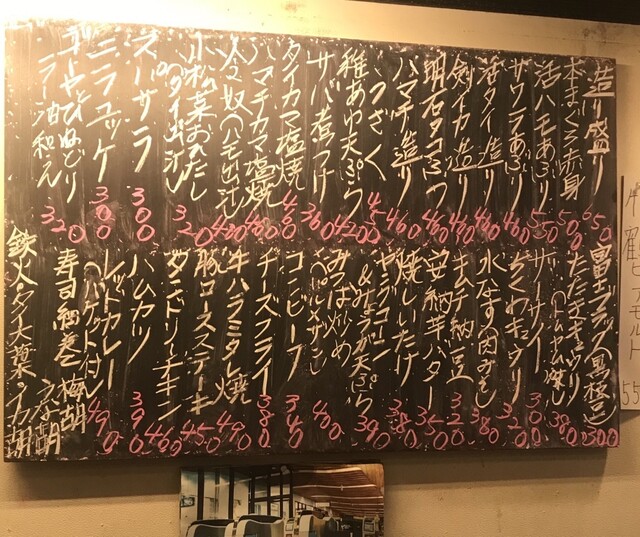 造り盛り 650
本まぐろ赤身 550
活ハモあぶり 550
サワラあぶり 460
活タイ造り 460
剣イカ造り 460
明石タコぶつ 460
ハマチ造り 460
うざく 450
稚あゆ天ぷら 420
サバ煮つけ 360
タイカマ塩焼 460
ハマチカマ塩焼 460
冷奴(ハモ出汁) 420
小松菜おひたし(タイ出汁) 320
スパサラ 300
ニラユッケ 300
ゴーヤとひねどりラー油和え 320
富士ブラック(黒枝豆) 500
たたきキュウリ(トムヤム漬し) 380
ザーサイ 300
ちくわキュウリ 320
水なすの肉みそ 380
キムチ納豆 320
安納芋バター 350
焼しいたけ 380
ヤングコーン&みょうが天ぷら 390
みつば炒めペルメザン 400
コンビーフ 340
チーズフライ 380
牛ハラミタレ焼 490
豚ロースステーキ 450
タンドリーチキン 460
ハムカツ 390
レッドカレー(バケット付し) 490
寿司細巻 梅胡 うな胡
鉄火・タイ大葉・イカ胡